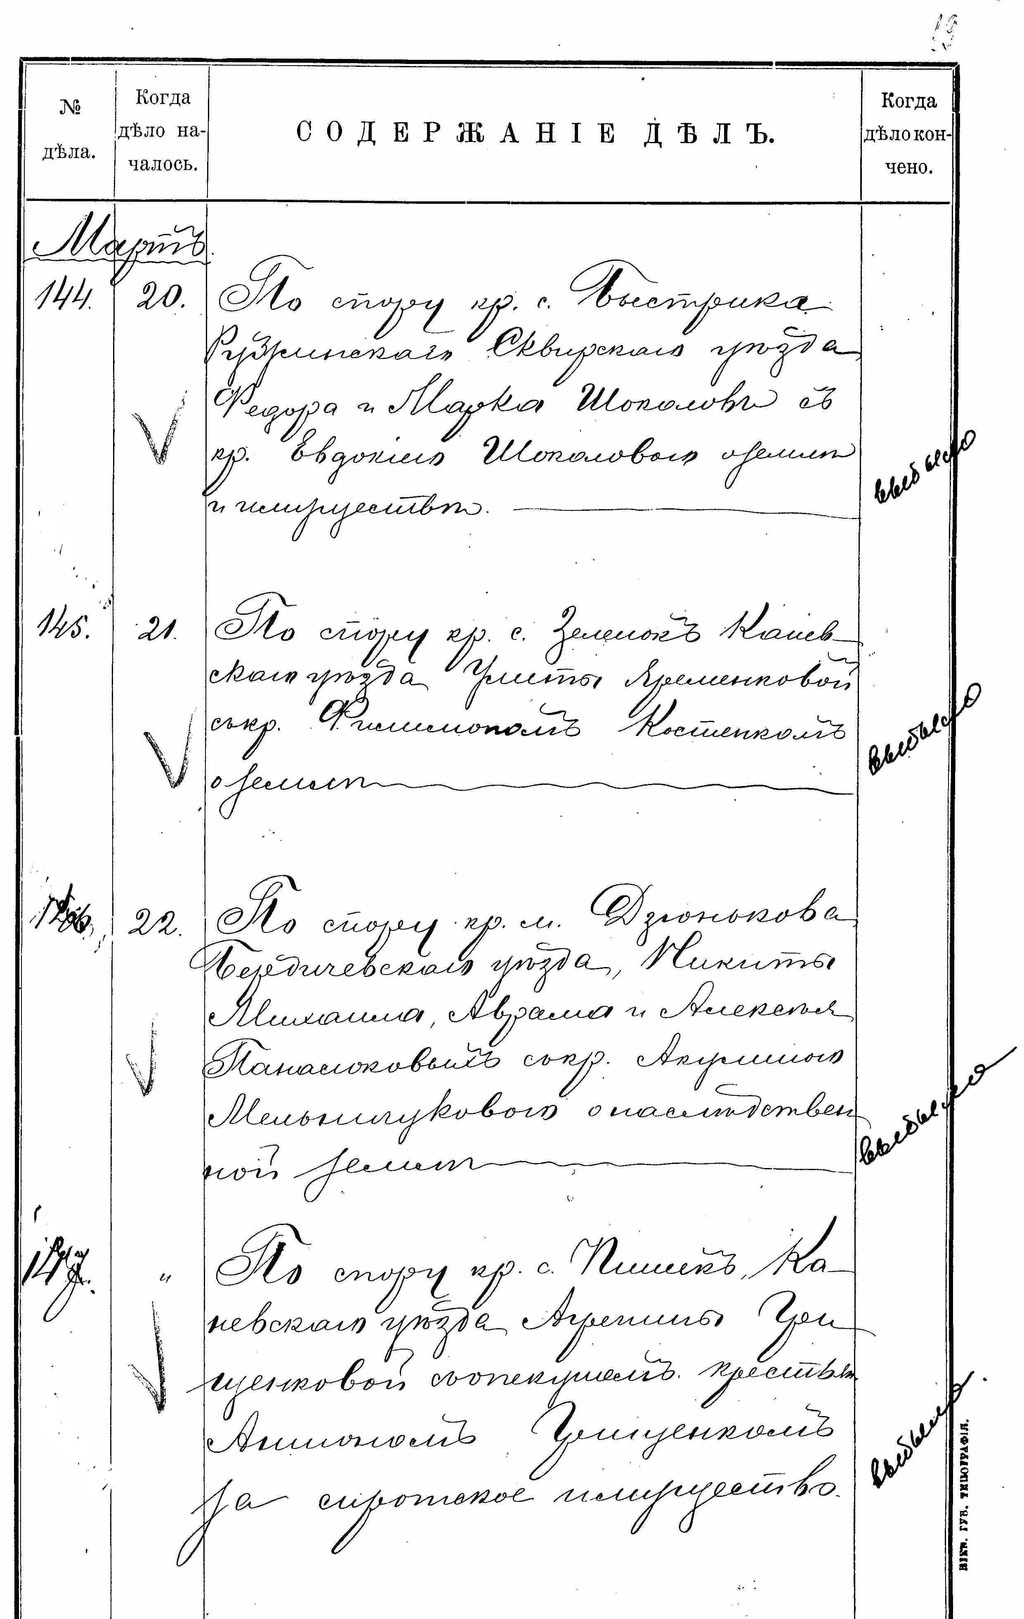 № дѣла.
Когда дѣло на-
чалось.
СОДЕРЖАНІЕ ДѢЛЪ.
Когда
дѣло кон-
чено.
Мартъ
144. 20. По спору кр. с. Быстрика
Ружинскаго Сквирскаго уѣзда
Федора и Марка Шокаловъ съ
кр. Евдокіею Шокаловою о землѣ
и имуществѣ.
выбыло
145. 21. По спору кр. с. Зеленокъ Канев-
скаго уѣзда Улиты Яременковой
съ кр. Филимономъ Костенкомъ
о землѣ
выбыло
146. 22. По спору кр. м. Дзюнькова
Бердичевскаго уѣзда, Никиты
Михаила, Аврама и Алексѣя
Панасюковыхъ съ кр. Акулиною
Мельничуковою о наслѣдствен
ной землѣ
выбыло
147. " По спору кр. с. Пилипчекъ, Ка-
невскаго уѣзда Агрепины Гри
щенковой съ опекуномъ крестьян
Антономъ Грищенкомъ
за сиротское имущество.
выбыло
КІЕВ. ГУБ. ТИПОГРАФІЯ.